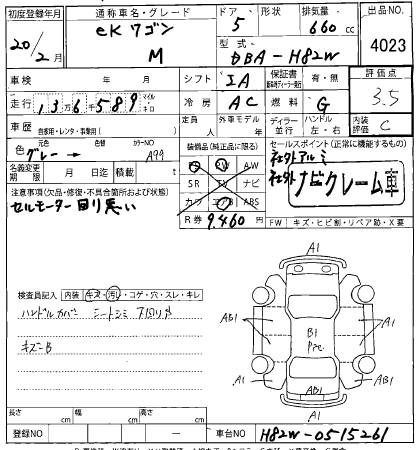 初度登録年月 通称車名・グレード ドア 形状 排気量 出品NO
20/2月 eKワゴン M 5 660 cc 4023
型式 DBA-H82W
車検 年 月 シフト IA 保証書 有・無 評価点 3.5
走行 13万6千589 マイル キロ 冷房 AC 燃料 G
車歴 自家用・レンタ・事業用( ) 定員 人 外車モデル 年 ディーラー 並行 ハンドル 左・右 内装評価 C
色 元色 グレー → 色 カラーNO A99
装備品(純正品に限る) セールスポイント(正常に機能するもの)
PS PW AW 社外アルミ
名義変更期限 月 日迄 積載 SR TV ナビ 社外ナビ
クレーム車
注意事項(欠品・修復・不具合箇所および状態) カワ エアB ABS
セルモーター回り悪い
R券 9,460円 FW キズ・ヒビ割・リペア跡・X要
検査員記入 内装 キズ・汚レ・コゲ・穴・スレ・キレ
ハンドルカバー シートシミ
キズ-B
A1
AB1 AB1
B1
A1 A1
AB1
A1
長さ cm 幅 cm 高さ cm
登録NO 車台NO H82W-0515261